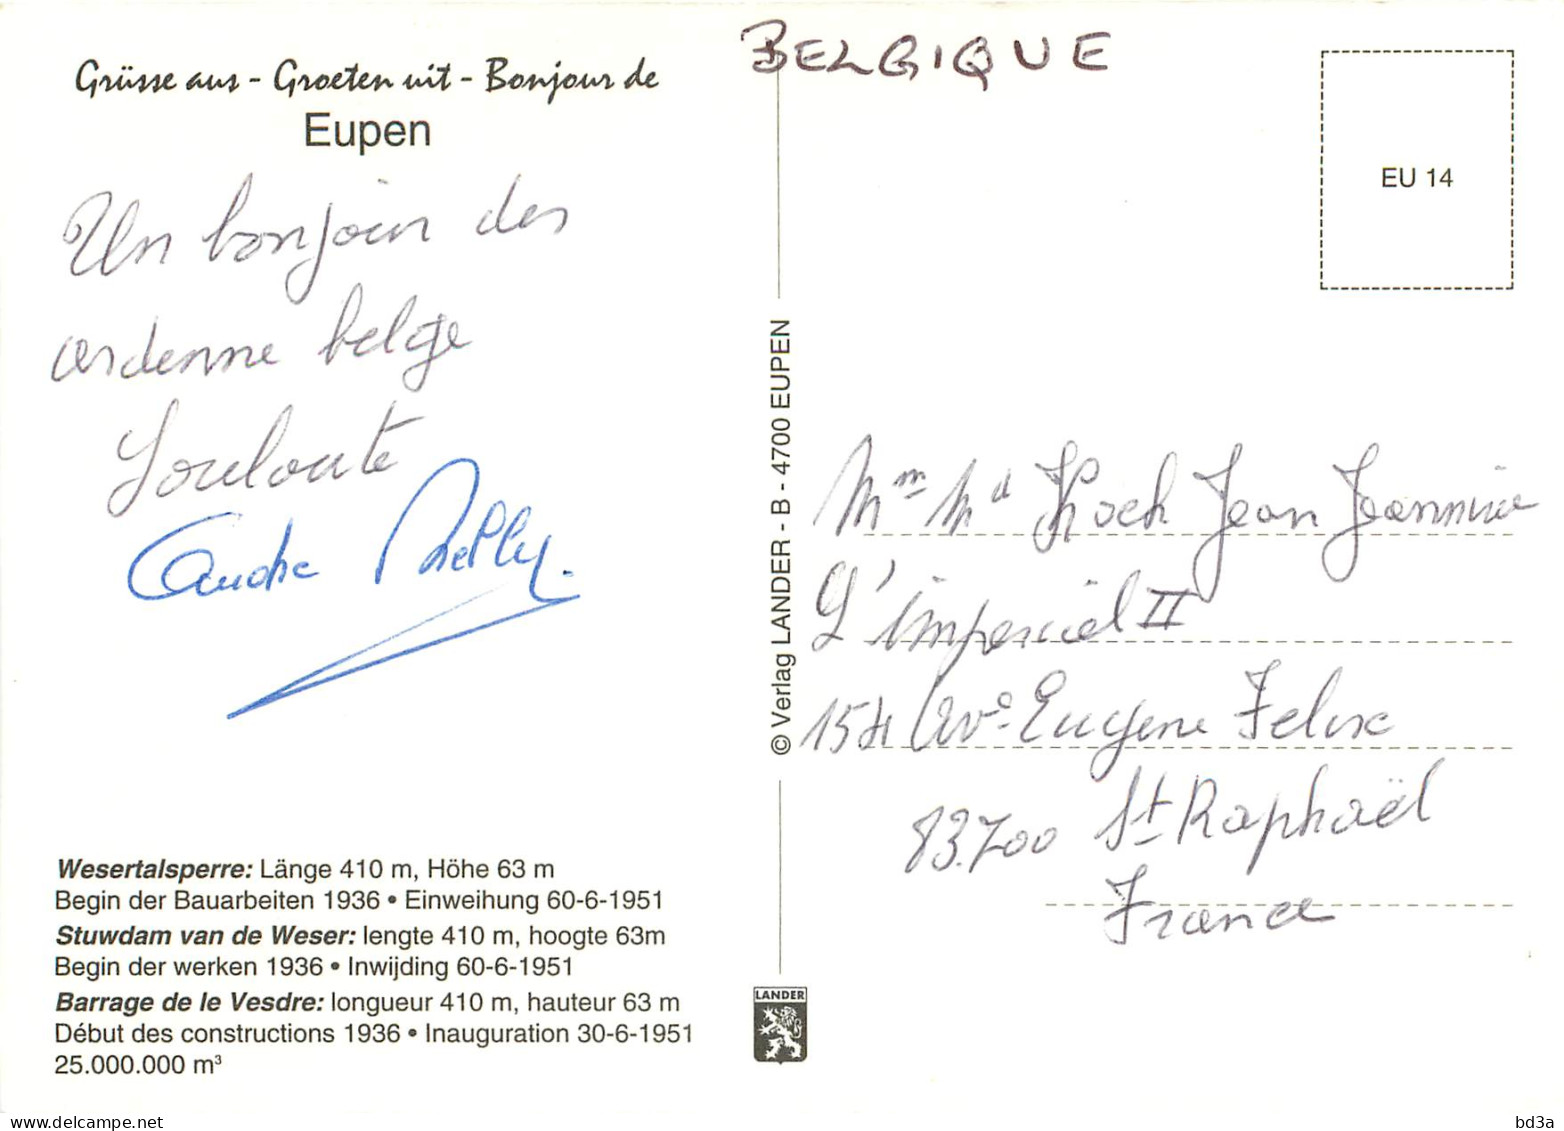 Grüsse aus - Groeten uit - Bonjour de
Eupen
Un bonjour des
ardenne belge
Louloute
Candre Nelly.
Wesertalsperre: Länge 410 m, Höhe 63 m
Begin der Bauarbeiten 1936 • Einweihung 60-6-1951
Stuwdam van de Weser: lengte 410 m, hoogte 63m
Begin der werken 1936 • Inwijding 60-6-1951
Barrage de le Vesdre: longueur 410 m, hauteur 63 m
Début des constructions 1936 • Inauguration 30-6-1951
25.000.000 m³
© Verlag LANDER - B - 4700 EUPEN
LANDER
BELGIQUE
EU 14
Mm Md Koch Jean Jeannine
L'imperial II
154 Ave Eugene Felix
83.700 St Raphaël
France
bd3a